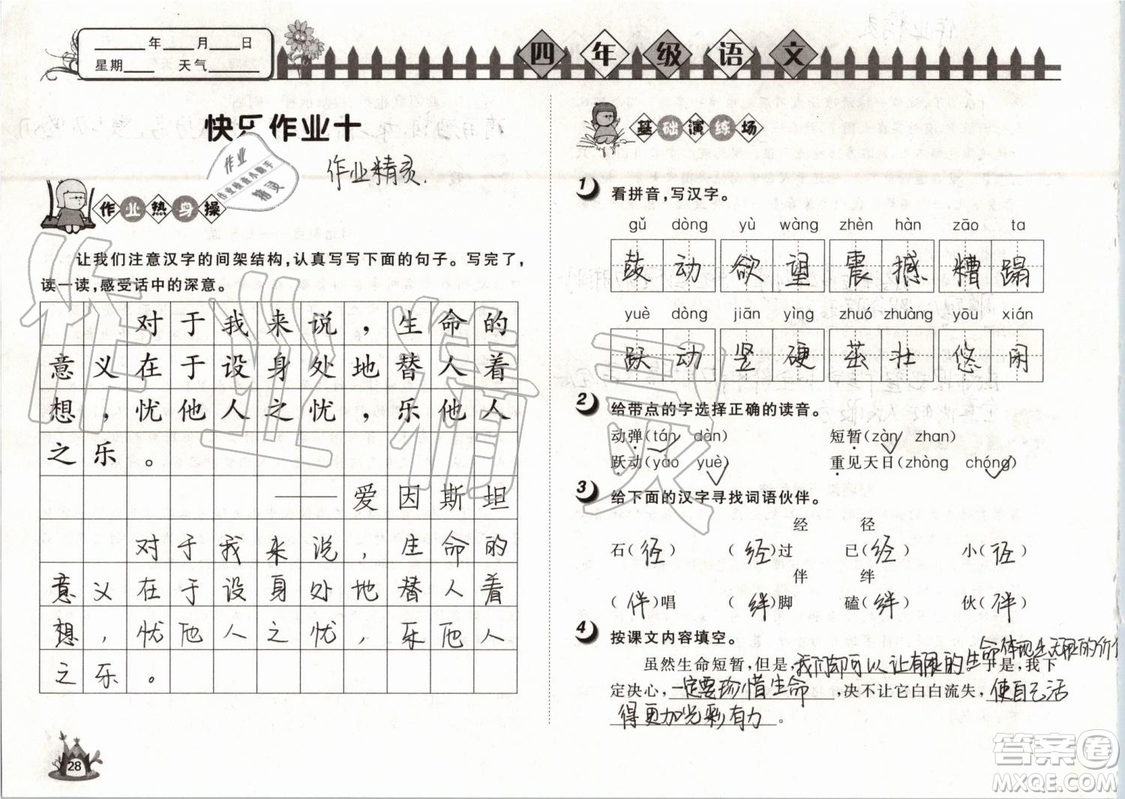 ____年__月__日
星期____ 天气________
四年级语文
快乐作业十
作业精灵
作业
精灵
作业热身操
让我们注意汉字的间架结构,认真写写下面的句子。写完了,
读一读,感受话中的深意。
对于我来说,生命的
意义在于设身处地替人着
想,忧他人之忧,乐他人
之乐。
——爱因斯坦
对于我来说,生命的
意义在于设身处地替人着
想,忧他人之忧,乐他人
之乐。
28
基础演练场
1 看拼音,写汉字。
gǔ dòng yù wàng zhèn hàn zāo ta
鼓动 欲望 震撼 糟蹋
yuè dòng jiān yìng zhuó zhuàng yōu xián
跃动 竖硬 茁壮 悠闲
2 给带点的字选择正确的读音。
动弹(tán dàn) 短暂(zàn zhan)
跃动(yào yuè) 重见天日(zhòng chóng)
3 给下面的汉字寻找词语伙伴。
经 径
石(径) (经)过 已(经) 小(径)
伴 绊
(伴)唱 (绊)脚 磕(绊) 伙(伴)
4 按课文内容填空。
虽然生命短暂,但是,我们却可以让有限的生命体现出无限的价值 于是,我下
定决心,一定要珍惜生命,决不让它白白流失,使自己活
得更加光彩有力。
作业精灵
答案圈
MXQE.COM